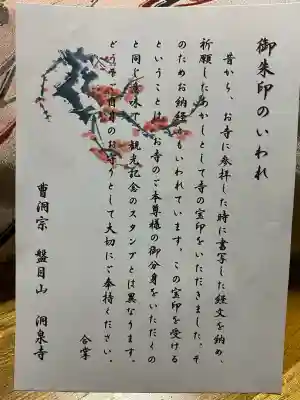 御朱印のいわれ
昔から、お寺に参拝した時に書写した経文を納め、
祈願したあかしとして寺の宝印をいただきました。そ
のためお納経ともいわれています。この宝印を受ける
ということは、お寺のご本尊様の御分身をいただくの
と同じ意味で、観光記念のスタンプとは異なります。
どうぞご自身のお守りとして大切にご奉持ください。
合掌
曹洞宗 盤目山 洞泉寺